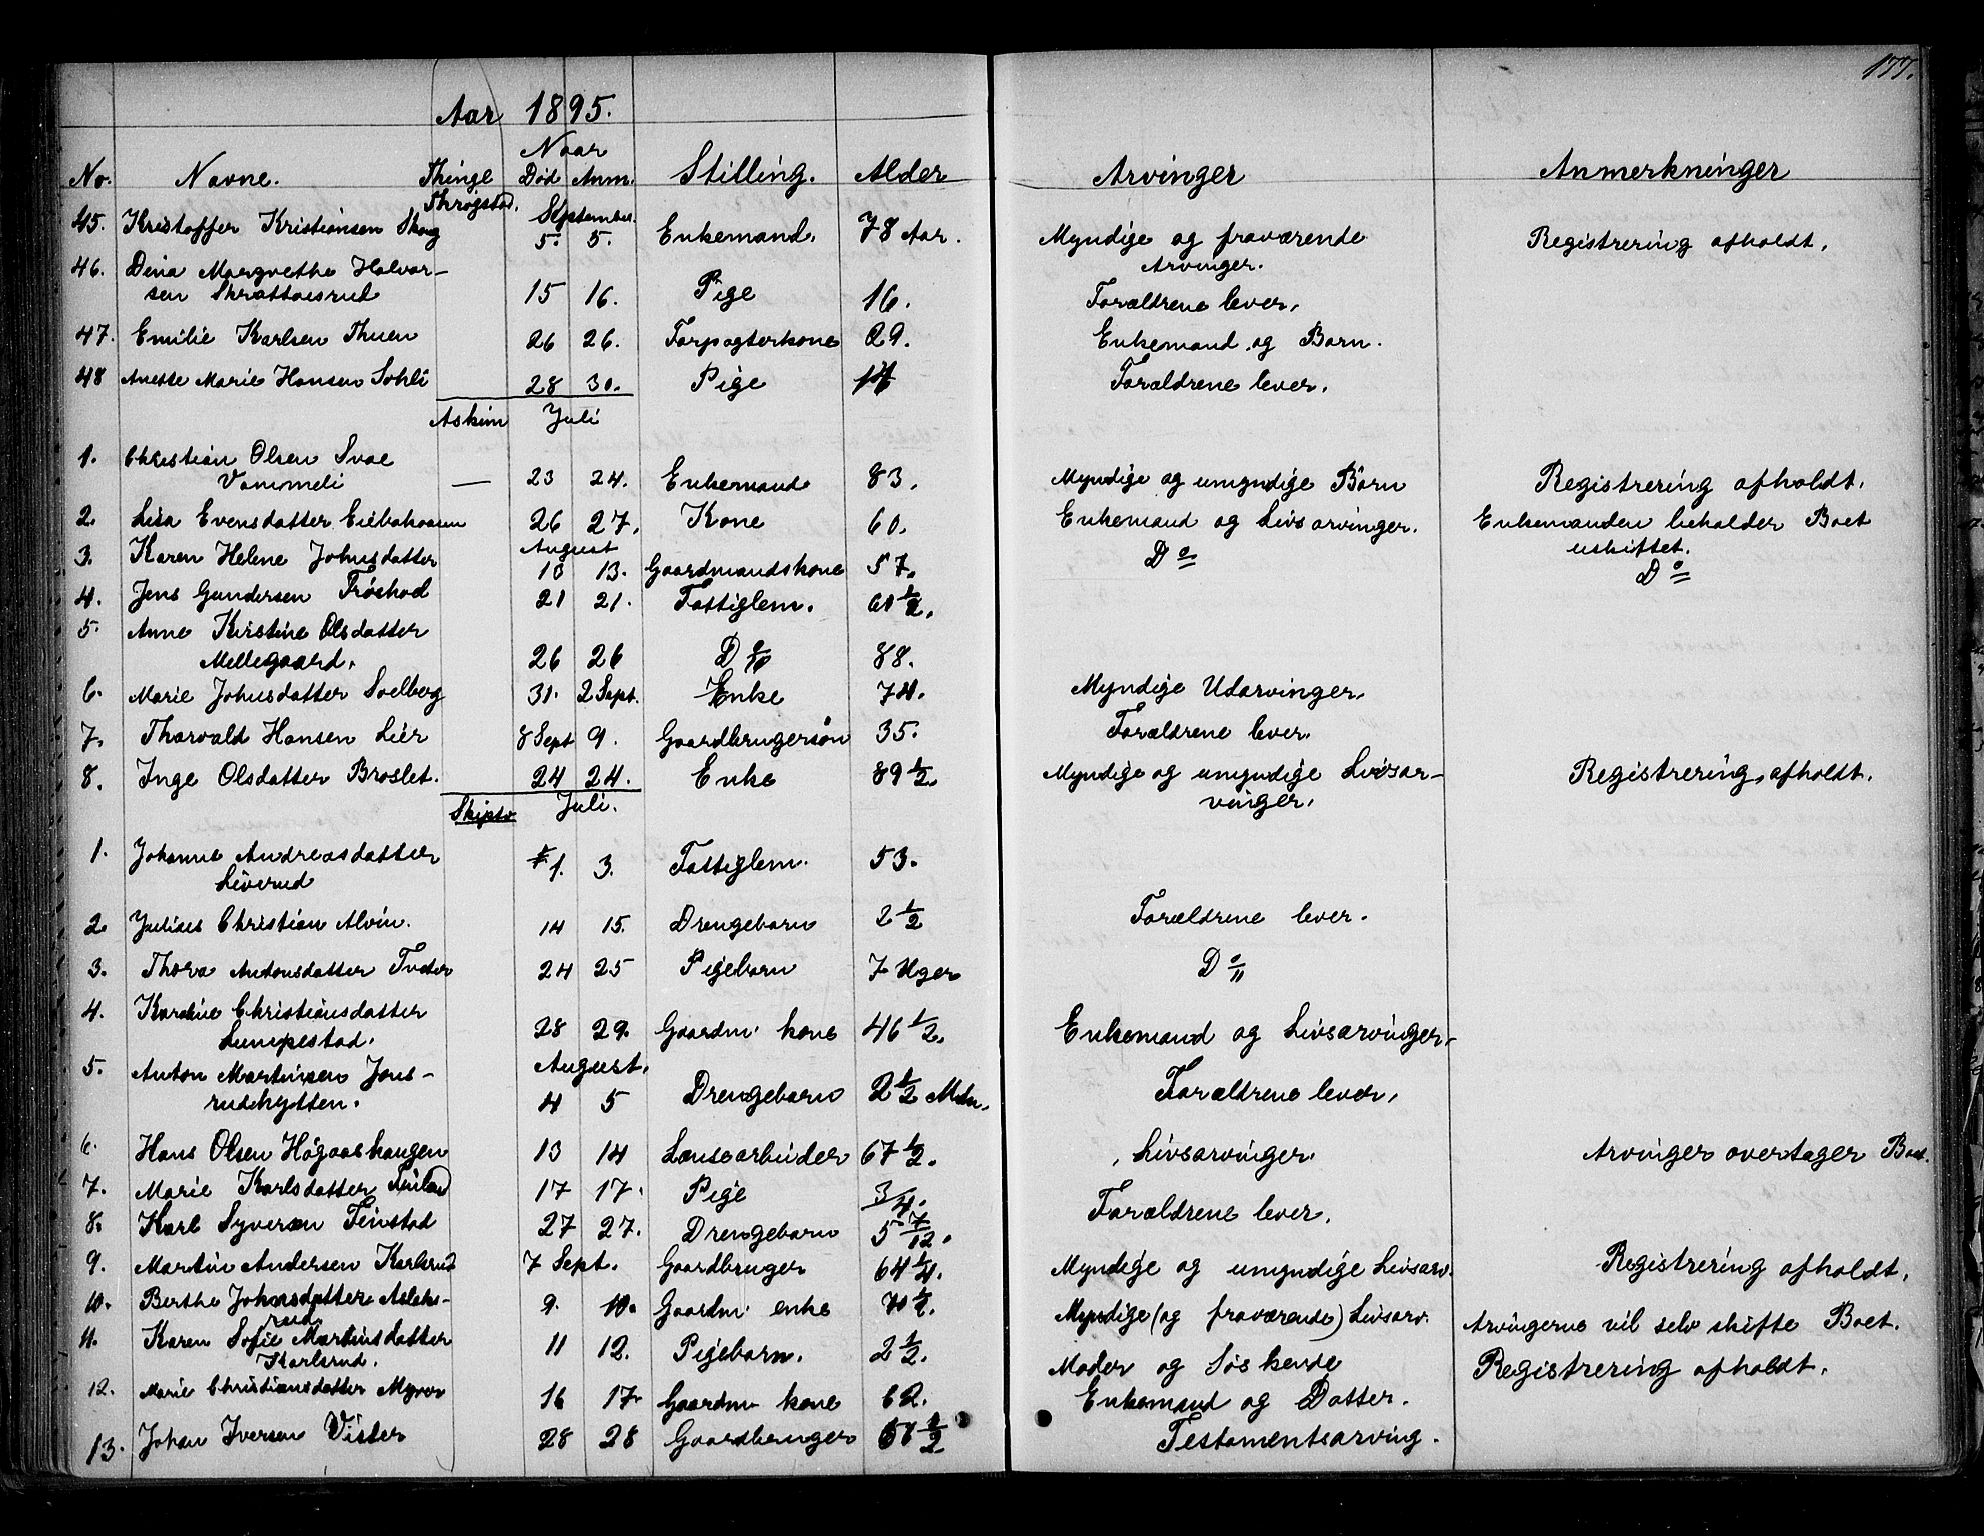 177.
Aar 1895.
Naar
No. Navne. Thinge Død Anm. Stilling. Alder Arvinger Anmerkninger
Thrøgstad. September.
45. Kristoffer Kristiansen Skoug 5. 5. Enkemand. 78 Aar. Myndige og fraværende Registrering afholdt.
Arvinger.
46. Dina Margrethe Halvor-
sen Skrattaasrud 15 16. Pige 16. Forældrene lever.
47. Emilie Karlsen Thuen 26 26. Forpagterkone 29. Enkemand og Barn.
48 Anette Marie Hansen Sohli 28 30. Pige 14 Forældrene lever.
Askim Juli
1. Christian Olsen Svae
Vammeli — 23 24. Enkemand 83. Myndige og umyndige Børn Registrering afholdt.
2. Lisa Evensdatter 26 27. Kone 60. Enkemand og Livsarvinger. Enkemanden beholder Boet
uskiftet.
August
3. Karen Helene Johnsdatter 10 13. Gaardmandskone 57. Do Do
4. Jens Gundersen Frøshod 21 21. Fattiglem. 60 1/2.
5. Anne Kirstine Olsdatter
Mellegaard. 26 26 Do 88.
6. Marie Johnsdatter Solberg 31. 2 Sept. Enke 74. Myndige Udarvinger.
7. Thorvald Hansen Lier 8 Sept 9. Gaardbrugersøn 35. Forældrene lever.
8. Inge Olsdatter Broslet. 24 24. Enke 89 1/2. Myndige og umyndige Livsar- Registrering afholdt.
vinger.
Skiptv Juli.
1. Johanne Andreasdatter
Liverud 1. 3. Fattiglem. 53.
2. Julius Christian Alvin. 14 15. Drengebarn 2 1/2 Forældrene lever.
3. Thora Antonsdatter Tveter 24 25 Pigebarn 7 Uger Do
4. Karoline Christiansdatter
Lumpestad. 28 29. Gaardm. kone 46 1/2. Enkemand og Livsarvinger.
August.
5. Anton Martinsen Jons-
rudhytten. 4 5 Drengebarn 2 1/2 Mdn. Forældrene lever.
6. Hans Olsen Høgaashaugen 13 14 Løusearbeider 67 1/2. Livsarvinger. Arvinger overtager Boet.
7. Marie Karlsdatter 17 17. Pige 3/4. Forældrene lever.
8. Karl Syversen Finstad 27 27. Drengebarn 5 7/12.
9. Martin Andersen Karlsrud 7 Sept. Gaardbruger 64 1/4. Myndige og umyndige Livsarv. Registrering afholdt.
10. Berthe Johnsdatter Aslaks-
rud 9. 10. Gaardm. enke 70 1/2. Myndige (og fraværende) Livsarv. Arvingerne vil selv skifte Boet.
11. Karen Sofie Martinsdatter
Karlsrud. 11 12. Pigebarn. 2 1/2. Moder og Søskende Registrering afholdt.
12. Marie Christiansdatter Myrvr 16 17. Gaardm. kone 62. Enkemand og Datter.
13. Johan Iversen Vister 28 28 Gaardbruger 61 1/2 Testamentsarving.